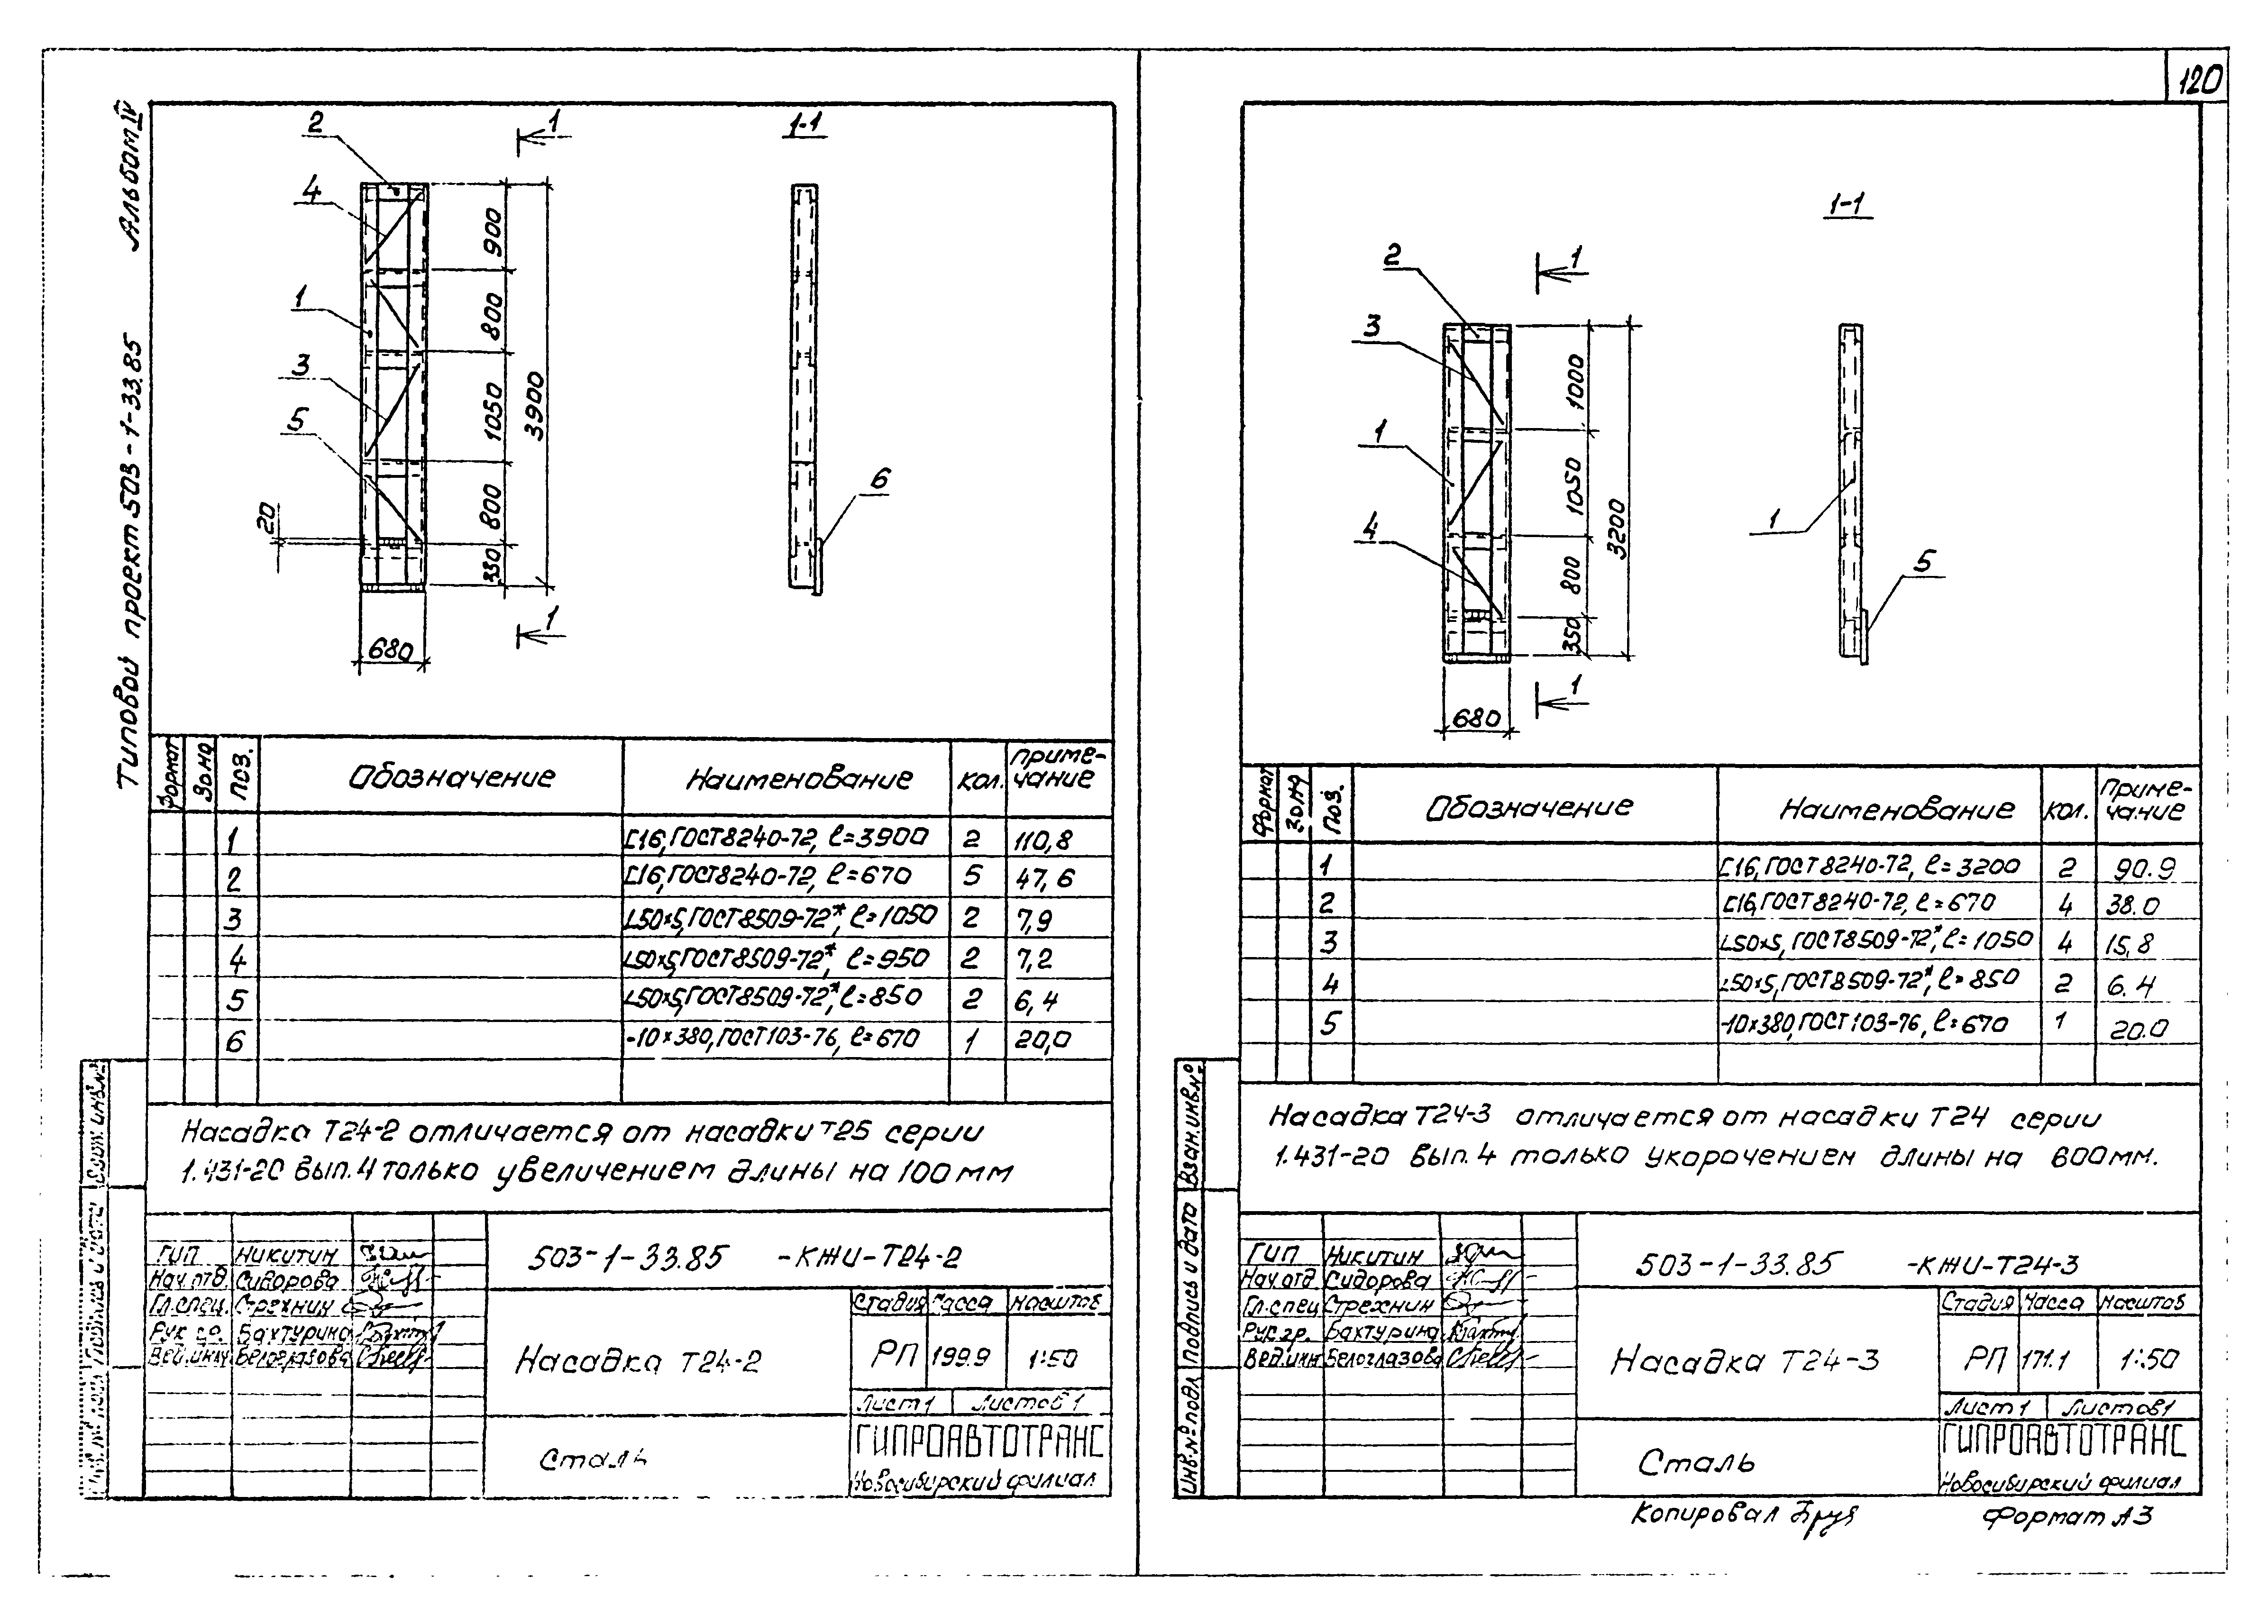 120
Типовой проект 503-1-33.85 Альбом IV
2
1
1-1
4
1
3
5
6
900
800
1050
800
350
3900
20
680
1
Формат Зона Поз. Обозначение Наименование Кол. Примечание
1 [16, ГОСТ 8240-72, ℓ=3900 2 110,8
2 [16, ГОСТ 8240-72, ℓ=670 5 47,6
3 L50×5, ГОСТ 8509-72*, ℓ=1050 2 7,9
4 L50×5, ГОСТ 8509-72*, ℓ=950 2 7,2
5 L50×5, ГОСТ 8509-72*, ℓ=850 2 6,4
6 -10×380, ГОСТ 103-76, ℓ=670 1 20,0
Насадка Т24-2 отличается от насадки Т25 серии
1.431-20 вып. 4 только увеличением длины на 100 мм
503-1-33.85 -КЖИ-Т24-2
ГИП Никитин
Нач.отд. Сидорова
Гл.спец. Стрехнин
Рук гр. Бахтурина
Вед.инж Белоглазова
Насадка Т24-2
Стадия Масса Масштаб
РП 199.9 1:50
Лист 1 Листов 1
Сталь
ГИПРОАВТОТРАНС
Новосибирский филиал
1-1
2
1
3
1
4
1
5
1000
1050
800
350
3200
680
1
Формат Зона Поз. Обозначение Наименование Кол. Примечание
1 [16, ГОСТ 8240-72, ℓ=3200 2 90.9
2 [16, ГОСТ 8240-72, ℓ=670 4 38.0
3 L50×5, ГОСТ 8509-72*, ℓ=1050 4 15,8
4 L50×5, ГОСТ 8509-72*, ℓ=850 2 6.4
5 -10×380, ГОСТ 103-76, ℓ=670 1 20.0
Насадка Т24-3 отличается от насадки Т24 серии
1.431-20 вып. 4 только укорочением длины на 600мм.
Взам.инв.№
Подпись и дата
Инв.№подл
503-1-33.85 -КЖИ-Т24-3
ГИП Никитин
Нач.отд Сидорова
Гл.спец Стрехнин
Рук.гр. Бахтурина
Вед.инж Белоглазова
Насадка Т24-3
Стадия Масса Масштаб
РП 171.1 1:50
Лист 1 Листов 1
Сталь
ГИПРОАВТОТРАНС
Новосибирский филиал
Копировал Формат А3